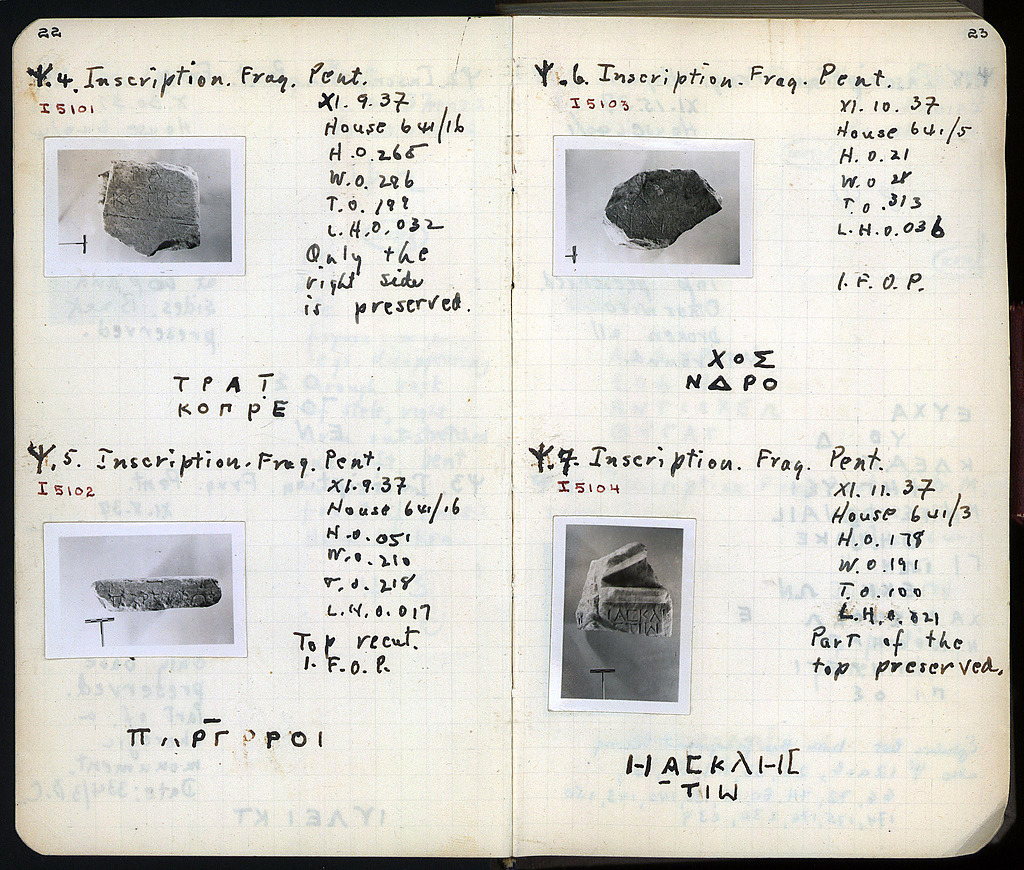 22
Ψ.4. Inscription. Frag. Pent.
I 5101
XI.9.37
House 641/16
H.0.265
W.0.296
T.0.199
L.H.0.032
Only the
right side
is preserved.
ΤΡΑΤ
ΚΟΠΡΕ
Ψ.5. Inscription. Frag. Pent.
I 5102
XI.9.37
House 641/16
H.0.051
W.0.210
T.0.218
L.H.0.017
Top recut.
I.F.O.P.
23
Ψ.6. Inscription. Frag. Pent.
I 5103
XI.10.37
House 641/5
H.0.21
W.0.28
T.0.313
L.H.0.036
I.F.O.P.
ΧΟΣ
ΝΔΡΟ
Ψ.7. Inscription. Frag. Pent.
I 5104
XI.11.37
House 641/3
H.0.178
W.0.191
T.0.100
L.H.0.021
Part of the
top preserved.
ΗΑϹΚΛΗϹ
ΤΙW